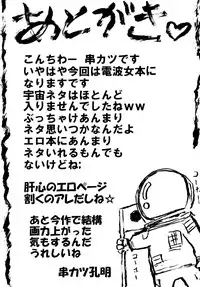 あとがき♡
こんちわー 串カツです
いやはや今回は電波女本に
なりますです
宇宙ネタはほとんど
入りませんでしたねww
ぶっちゃけあんまり
ネタ思いつかなんだよ
エロ本にあんまり
ネタいれるもんでも
ないけどね:
肝心のエロページ
割くのアレだしね☆
あと今作で結構
画力上がった
気もするんだ
うれしいね
串カツ孔明
コーホー
コーホー